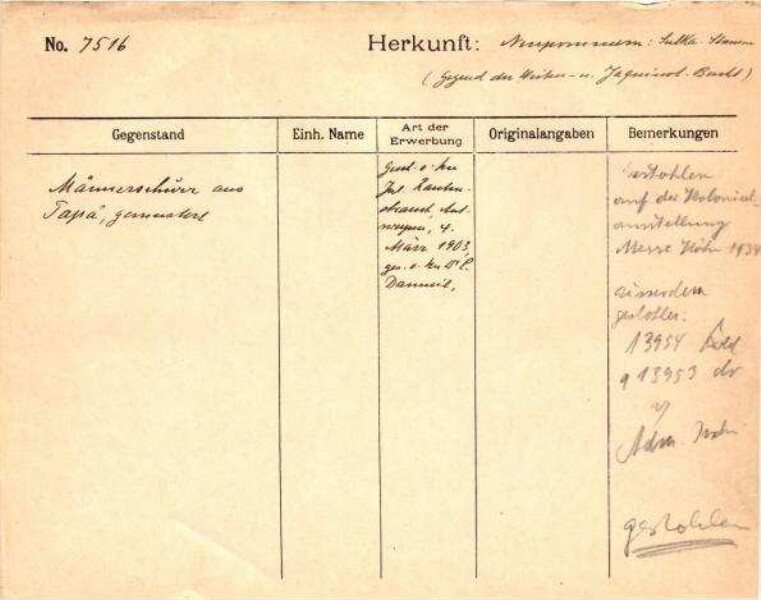 No. 7516
Herkunft: Neupommern: Sulka-Stamm
(Gegend der Weiten- u. Jaquinot-Bucht)
Gegenstand
Einh. Name
Art der Erwerbung
Originalangaben
Bemerkungen
Männerschürze aus
Tapa, gemustert
Gesch. v. Frau
Jul. Rauten-
strauch, Ant-
werpen, 4.
März 1903,
ges. v.
gestohlen
auf der Kolonial-
ausstellung
Messe Köln 1934
ausserdem
gestohlen:
13954
13953
gestohlen